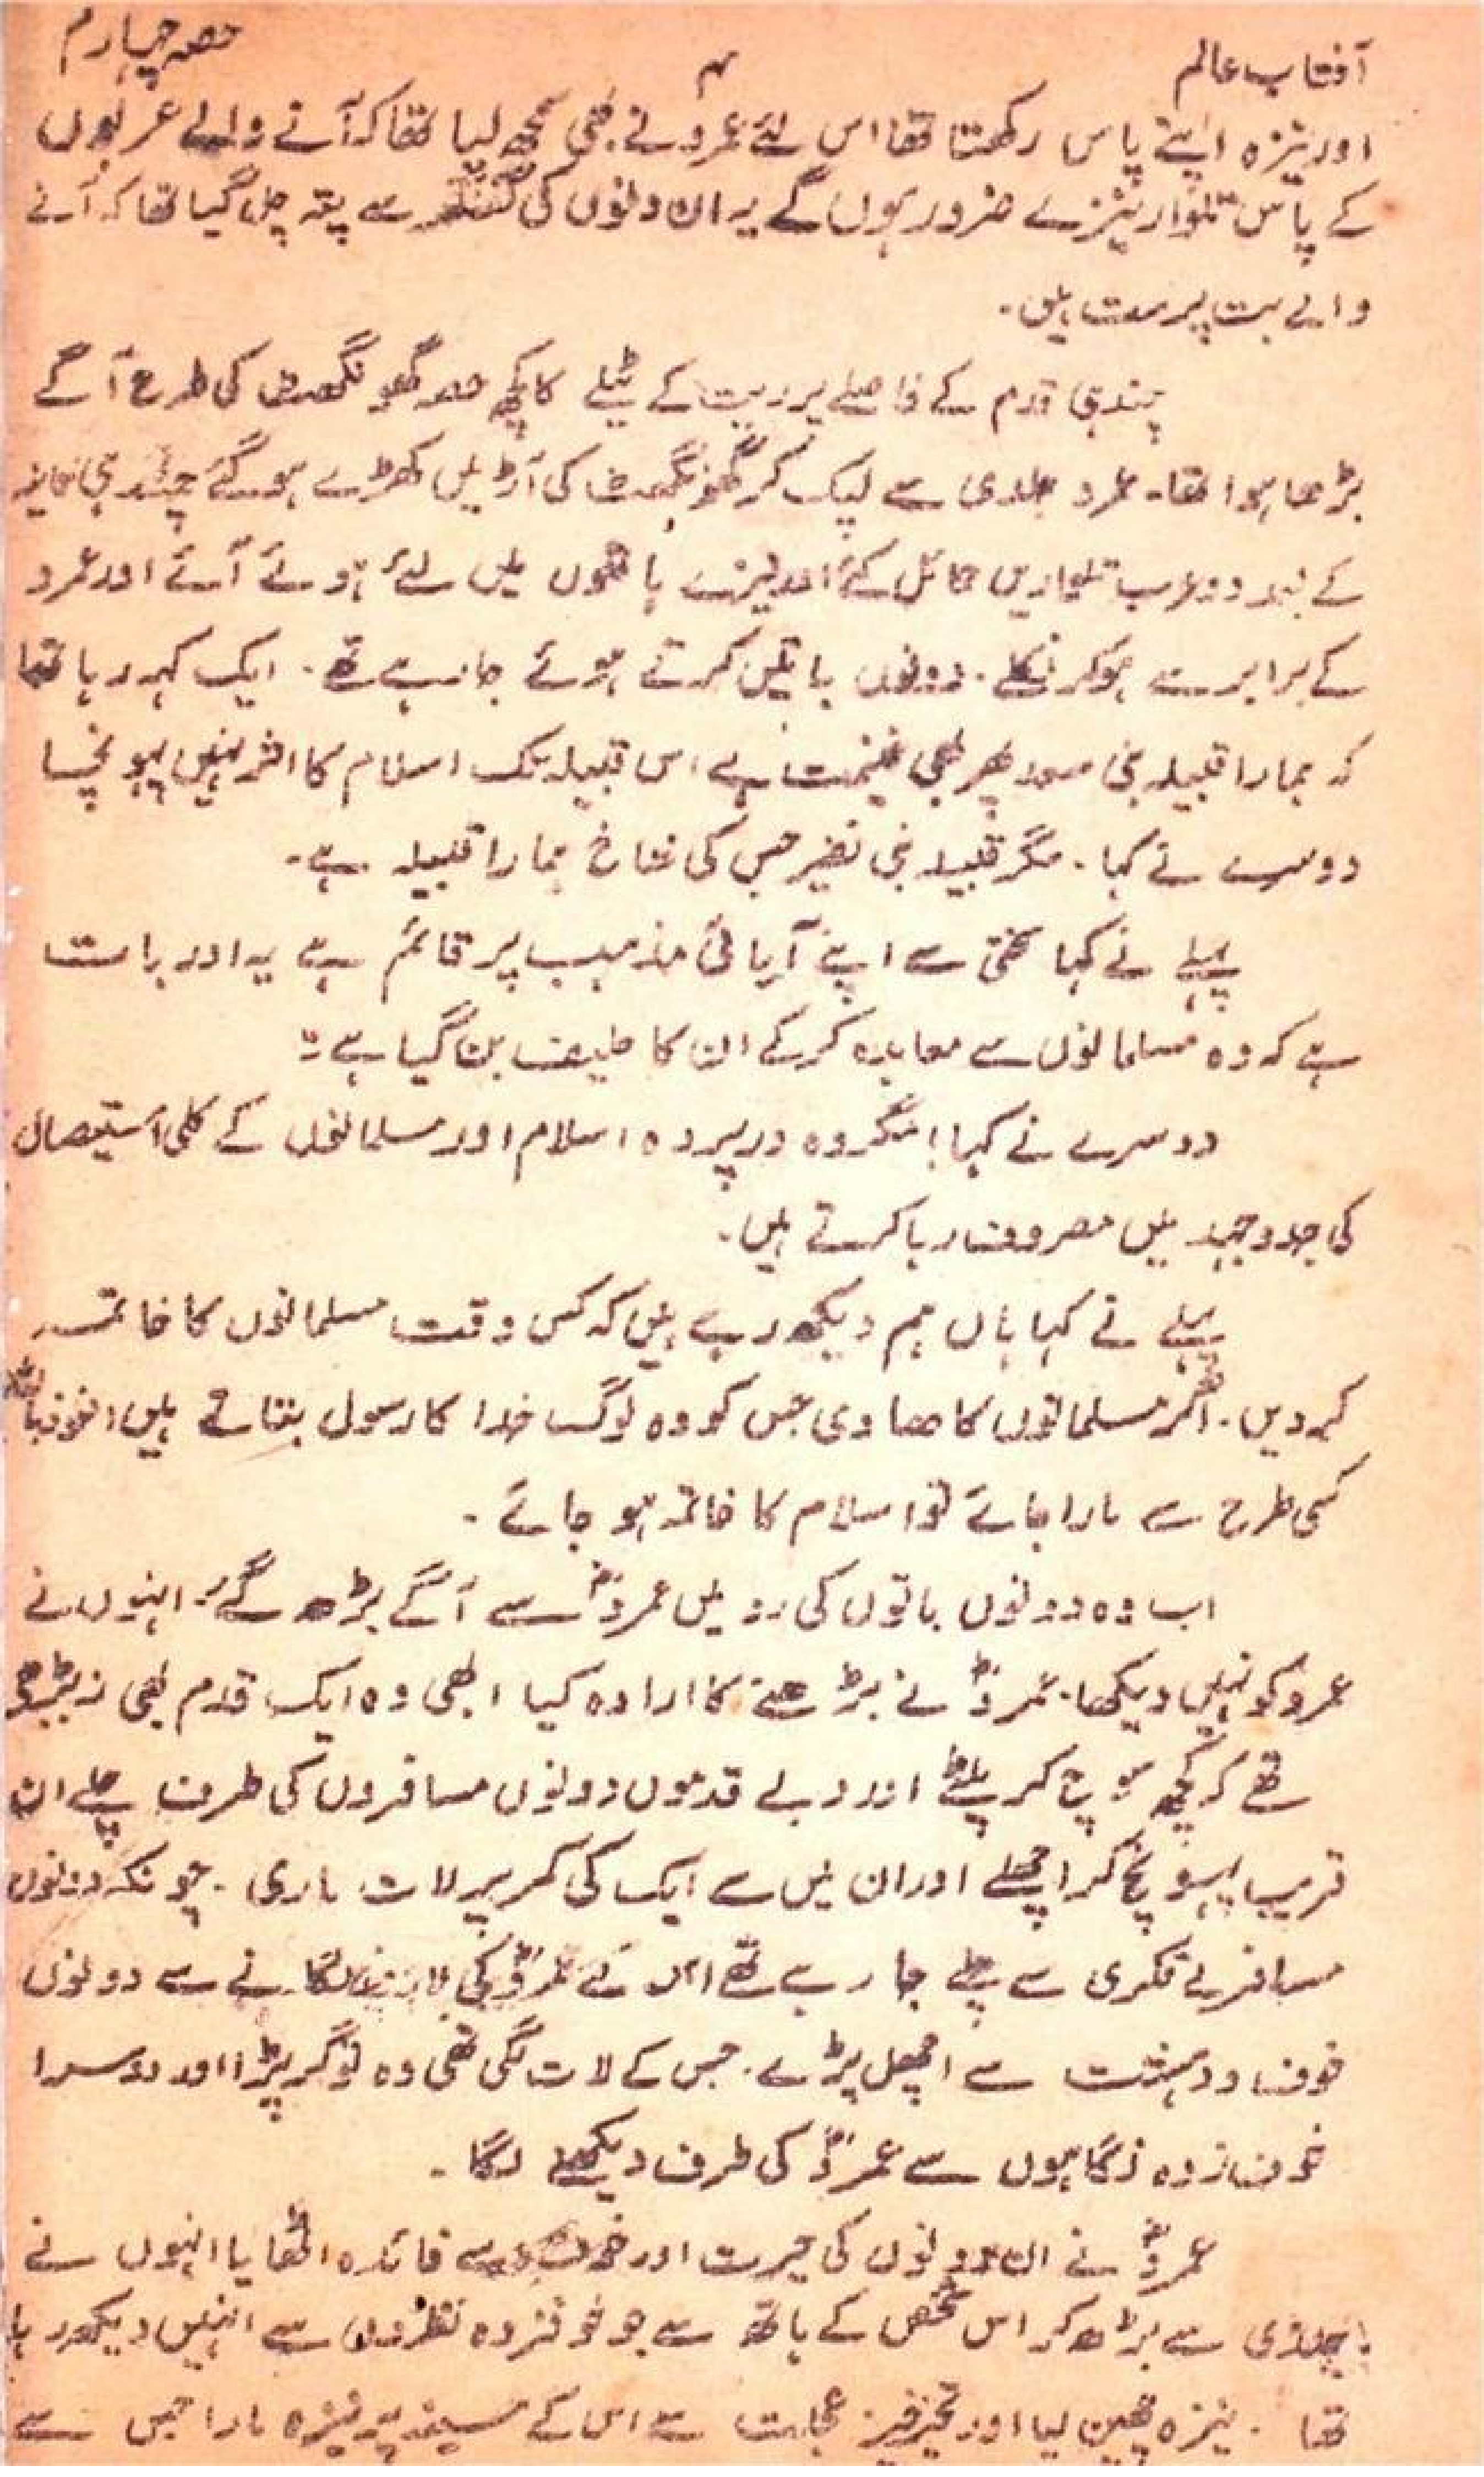 آفتاب عالم ۴ حصہ چہارم
اور نیزہ اپنے پاس رکھتا تھا اس لئے عمرو نے بھی سمجھ لیا تھا کہ آنے والے عربوں
کے پاس تلوار نیزے ضرور ہوں گے یہ ان دونوں کی گفتگو سے پتہ چل گیا تھا کہ آنے
والے بت پرست ہیں۔
چند ہی قدم کے فاصلے پر ریت کے ٹیلے کا کچھ حصہ گھونگھٹ کی طرح آگے
بڑھا ہوا تھا۔ عمرو جلدی سے لپک کر گھونگھٹ کی آڑ میں کھڑے ہو گئے چند ہی ثانیہ
کے بعد دو عرب تلواریں حمائل کئے اور نیزے ہاتھوں میں لئے ہوئے آئے اور عمرو
کے برابر سے ہو کر نکلے۔ دونوں باتیں کرتے ہوئے جا رہے تھے۔ ایک کہہ رہا تھا
کہ ہمارا قبیلہ بنی سعد پھر بھی غنیمت ہے اس قبیلہ تک اسلام کا اثر نہیں پہونچا
دوسرے نے کہا۔ مگر قبیلہ بنی نضیر جس کی شاخ ہمارا قبیلہ ہے۔
پہلے نے کہا سختی سے اپنے آبائی مذہب پر قائم ہے یہ اور بات
ہے کہ وہ مسلمانوں سے معاہدہ کرکے ان کا حلیف بن گیا ہے۔
دوسرے نے کہا! مگر وہ در پردہ اسلام اور مسلمانوں کے کلی استیصال
کی جدوجہد میں مصروف رہا کرتے ہیں۔
پہلے نے کہا ہاں ہم دیکھ رہے ہیں کہ کس وقت مسلمانوں کا خاتمہ
کردیں۔ اگر مسلمانوں کا ہادی جس کو وہ لوگ خدا کا رسول بتاتے ہیں (نعوذ باللہ)
کسی طرح سے مارا جائے تو اسلام کا خاتمہ ہو جائے۔
اب وہ دونوں باتوں کی رو میں عمروؓ سے آگے بڑھ گئے انہوں نے
عمرو کو نہیں دیکھا۔ عمروؓ نے بڑھنے کا ارادہ کیا ابھی وہ ایک قدم بھی نہ بڑھے
تھے کہ کچھ سوچ کر پلٹے اور دبے قدموں دونوں مسافروں کی طرف چلے ان
قریب پہونچ کر اچھلے اور ان میں سے ایک کی کمر پر لات ماری۔ چونکہ دونوں
مسافر بے فکری سے چلے جا رہے تھے اس لئے عمروؓ کی لات لگانے سے دونوں
خوف و دہشت سے اچھل پڑے۔ جس کے لات لگی تھی وہ تو گر پڑا اور دوسرا
خوف زدہ نگاہوں سے عمروؓ کی طرف دیکھنے لگا۔
عمروؓ نے ان دونوں کی حیرت اور خوف سے فائدہ اٹھایا انہوں نے
جلدی سے بڑھ کر اس شخص کے ہاتھ سے جو خوفزدہ نظروں سے انہیں دیکھ رہا
تھا۔ نیزہ چھین لیا اور تحیر خیز عجلت سے اس کے سینہ پر نیزہ مارا جس سے